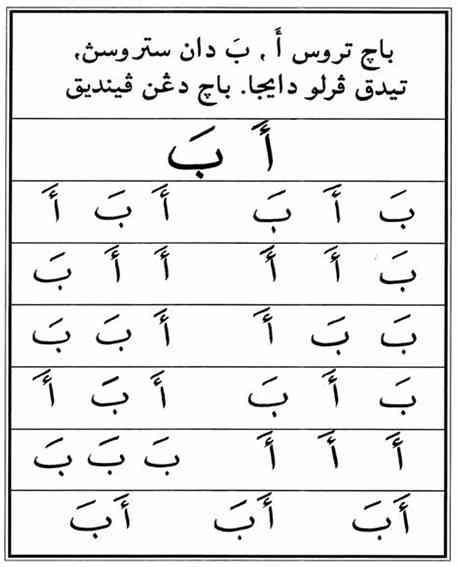 باچ تروس أَ , بَ دان ستروسڽ,
تيدق ڤرلو دايجا. باچ دڠن ڤينديق
أَ بَ
بَ أَ بَ أَ بَ أَ
بَ أَ أَ أَ أَ بَ
بَ بَ أَ أَ بَ بَ
بَ أَ بَ أَ بَ أَ
أَ أَ أَ بَ بَ بَ
أَبَ أَبَ أَبَ